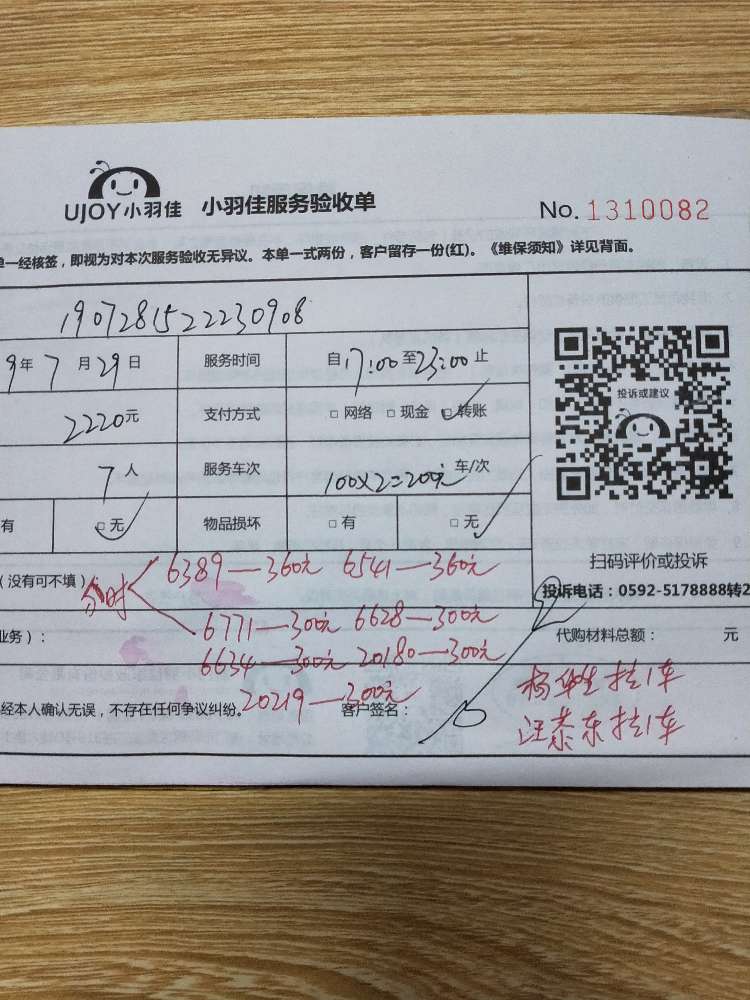 UJOY小羽佳 小羽佳服务验收单
No. 1310082
单一经核签，即视为对本次服务验收无异议。本单一式两份，客户留存一份(红)。《维保须知》详见背面。
1907281522230908
9年7月29日 服务时间 自17:00至23:00止
2220元 支付方式 □网络 □现金 □转账
投诉或建议
7人 服务车次 100×2=200元 车/次
有 □无 物品损坏 □有 □无
扫码评价或投诉
(没有可不填) 分时 6389—360元 6541—360元
投诉电话：0592-5178888转2
6771—300元 6628—300元
业务)： 代购材料总额： 元
6634—300元 20180—300元
经本人确认无误，不存在任何争议纠纷。 20219—300元 客户签名：
杨华生拉1车
汪泰东拉1车